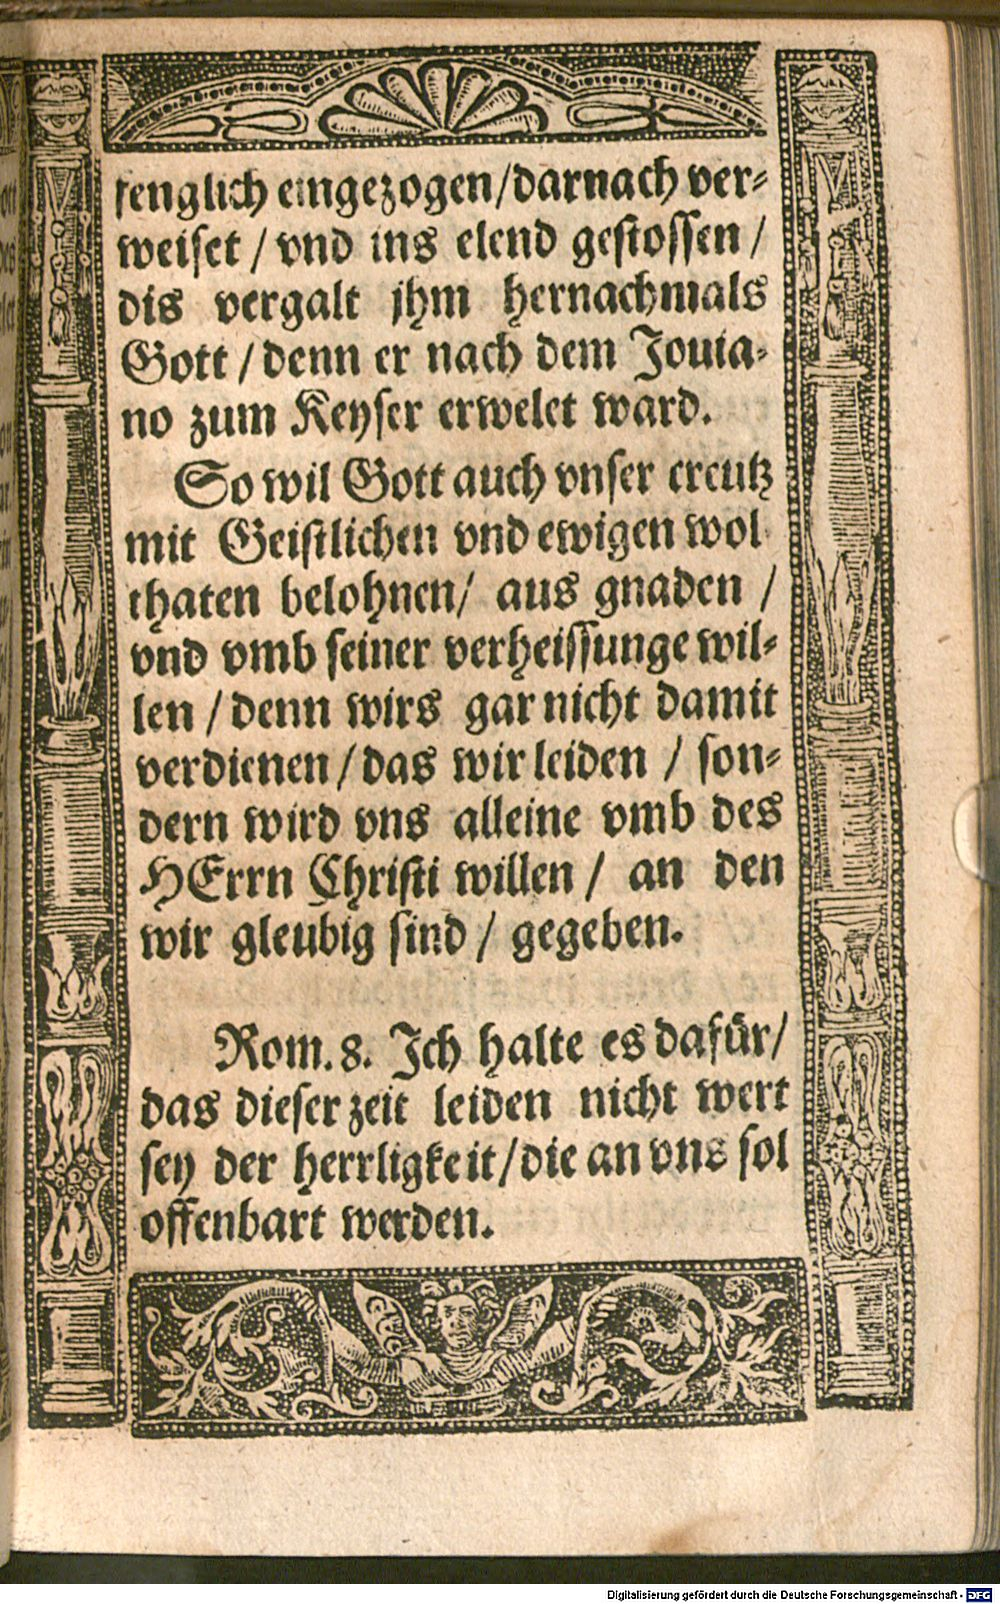 fenglich eingezogen/darnach ver-
weiset / vnd ins elend gestossen /
dis vergalt jhm hernachmals
Gott / denn er nach dem Jouia-
no zum Keyser erwelet ward.
So wil Gott auch vnser creutz
mit Geistlichen vnd ewigen wol
thaten belohnen/ aus gnaden /
vnd vmb seiner verheissunge wil-
len / denn wirs gar nicht damit
verdienen / das wir leiden / son-
dern wird vns alleine vmb des
HErrn Christi willen / an den
wir gleubig sind / gegeben.
Rom. 8. Ich halte es dafür/
das dieser zeit leiden nicht wert
sey der herrligkeit/die an vns sol
offenbart werden.
Digitalisierung gefördert durch die Deutsche Forschungsgemeinschaft - DFG